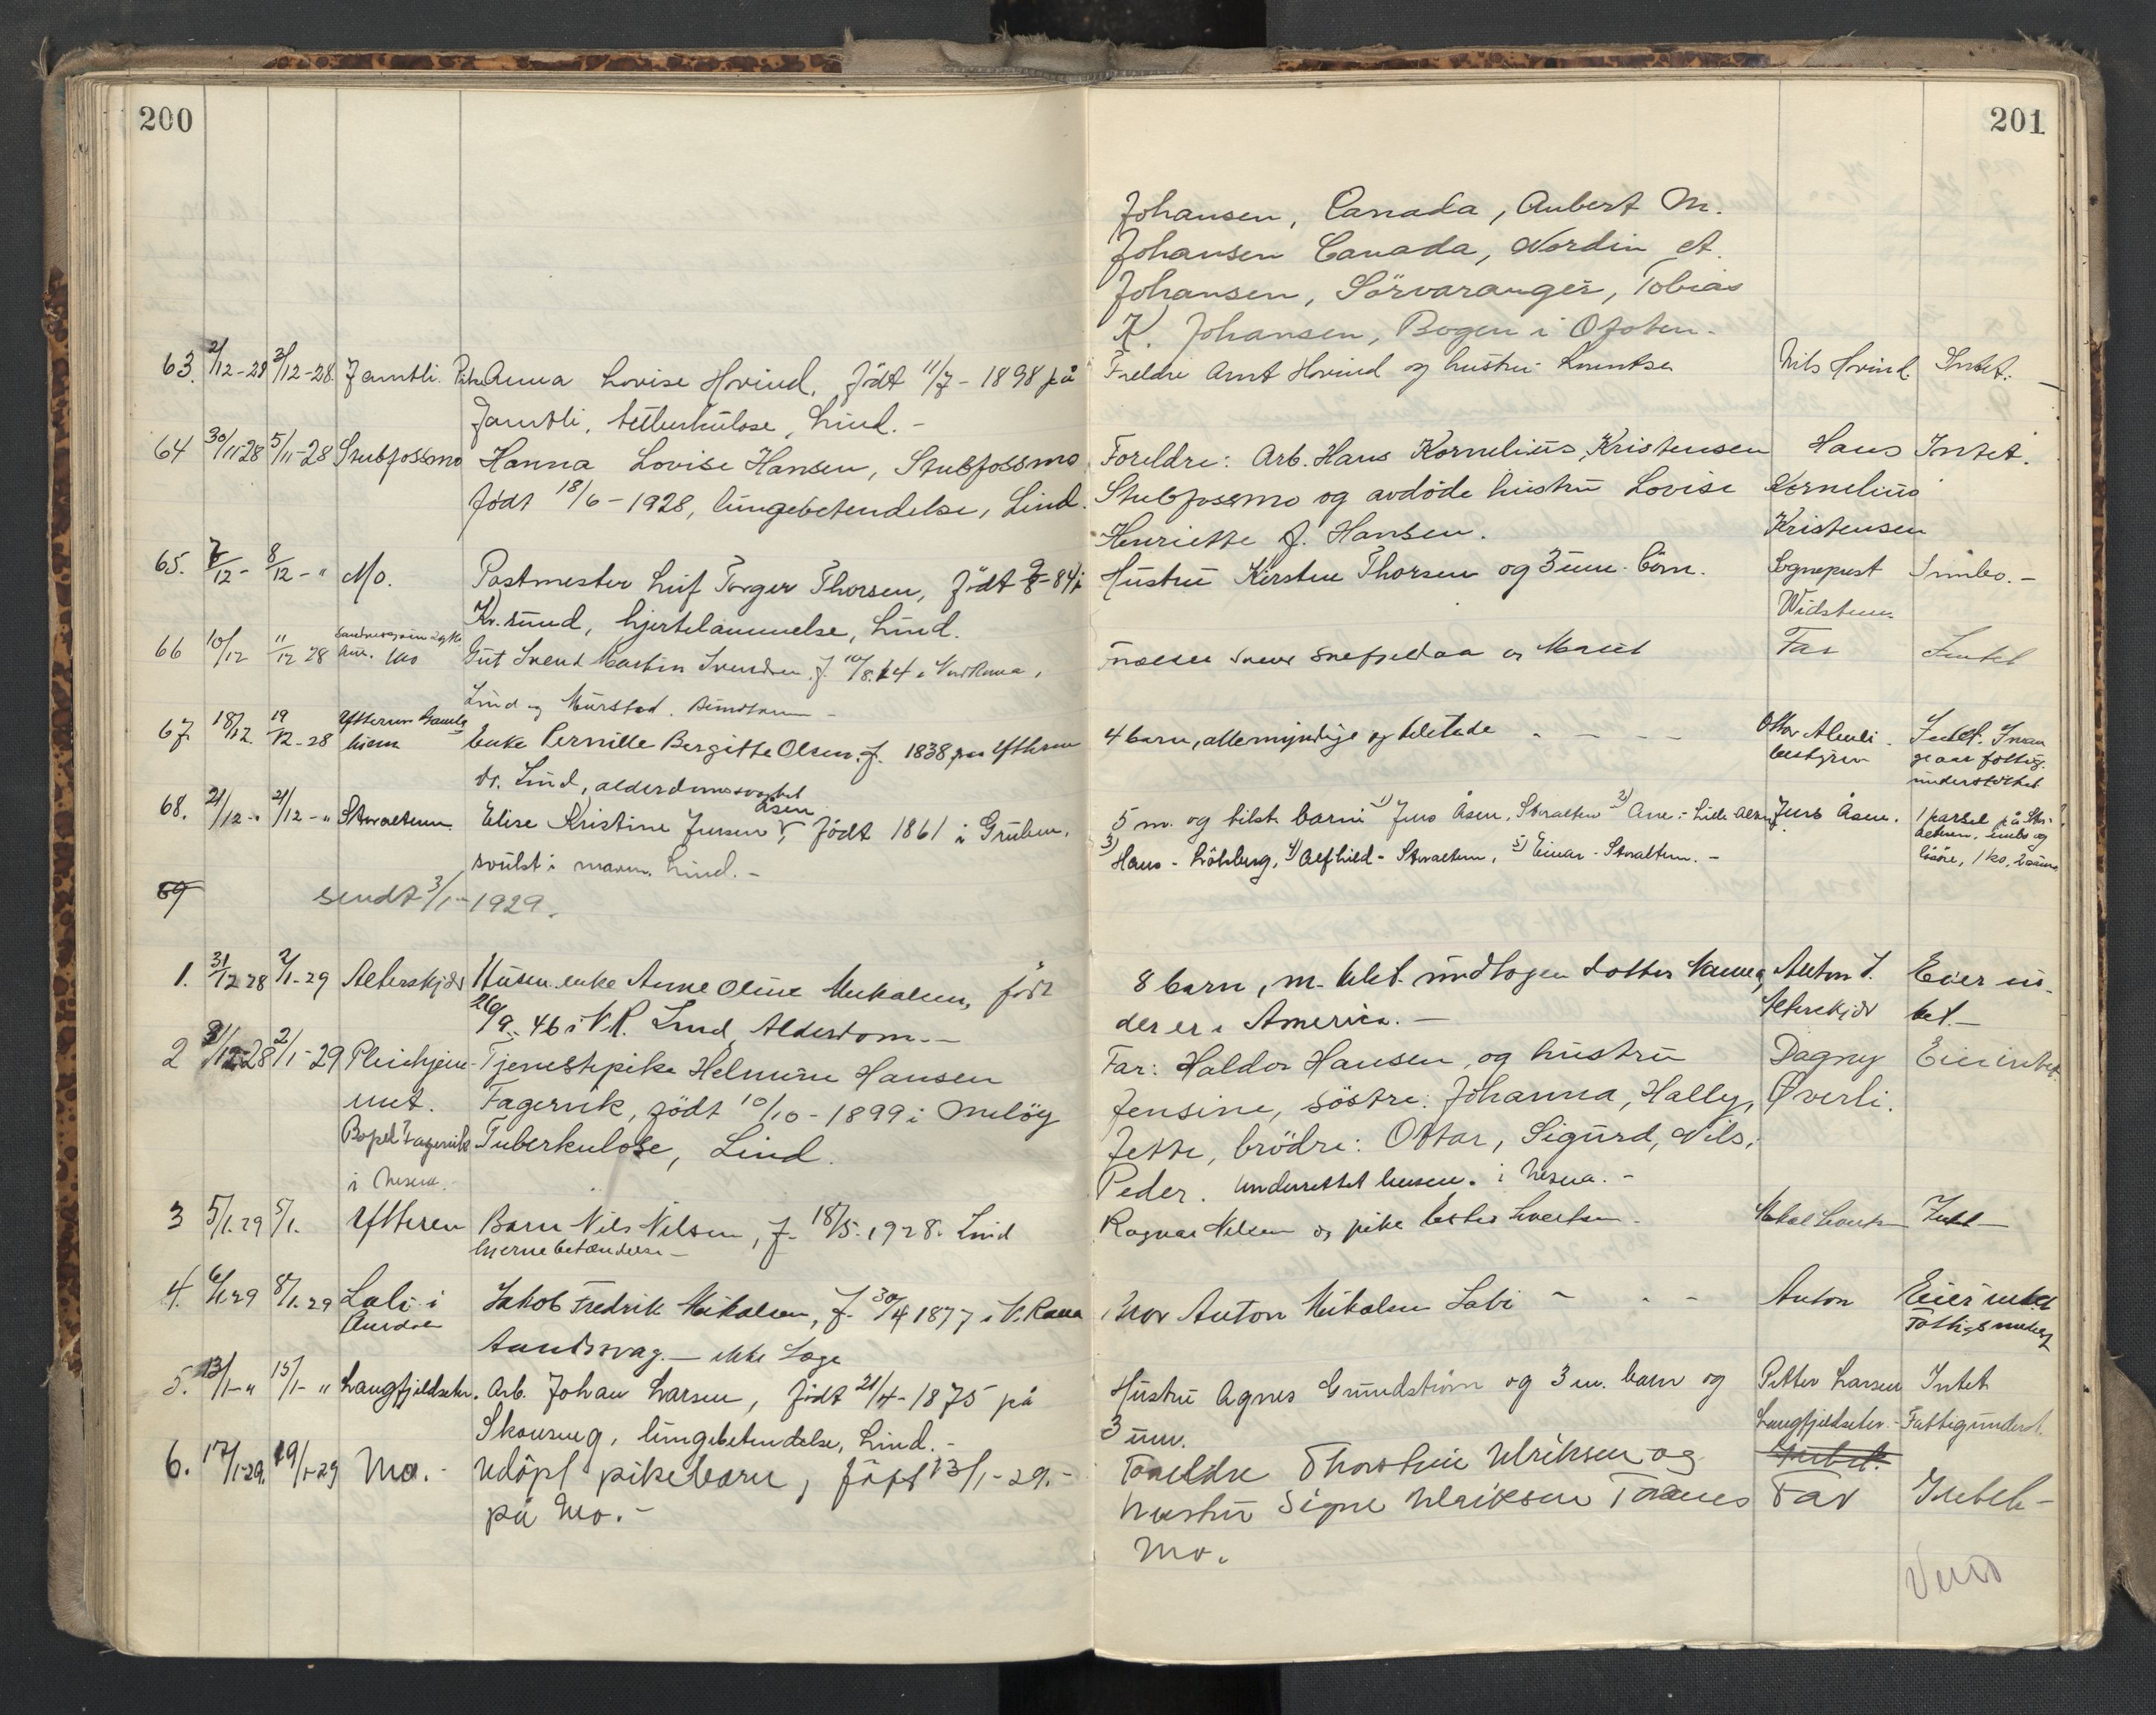 200
201
Johansen, Canada, Aubert M.
Johansen Canada, Nordin A.
Johansen, Sörvaranger, Tobias
K. Johansen, Bogen i Ofoten.
63. 2/12-28 3/12-28 Jamtli. Pike Anna Lovise Hovind, födt 11/7-1898 på
Jamtli, tuberkulose, Lind.-
Foreldre Arnt Hovind og hustru
Nils Hovind. Intet.-
64 30/11-28 5/11-28 Stubfossmo Hanna Lovise Hansen, Stubfossmo
födt 18/6-1928, lungebetendelse, Lind.
Foreldre: Arb. Hans Kornelius Kristensen
Stubfossmo og avdöde hustru Lovise
Henriette J. Hansen.
Hans Kornelius Kristensen
Intet.
65. 7/12- 8/12-" Mo. Postmester Leif Torger Thorsen, födt 9/8-84 i
Kr.sund, hjertelammelse, Lind.
Hustru Kirsten Thorsen og 3 um. börn.
Sogneprest Widsteen
Innbo.-
66 10/12 11/12 28 Mo
Gut Svend Martin Svendsen f. 10/8.14 i Nord Rana,
Lind og
Far
Intet
67 18/12. 19/12-28 Ytteren Gamlehjem
Enke Pernille Bergitte Olsen. f. 1838 paa Ytteren
dr. Lind, alderdomssvakhet
4 barn, alle myndige og tilstede - - - -
bestyrer
Intet. I mange aar fattigunderstöttet
68. 21/12-" 21/12-" Storaeteren. Elise Kristine Jensen Åsen, födt 1861 i Gruben.
svulst i maven. Lind.-
5 m. og tilst. barn: 1) Jens Åsen, Storalteren 2) Ane - Lille Alteren
3) Hans - Löhberg, 4) Alfhild - Storalteren, 5) Einar - Storalteren.-
Jens Åsen.
1 parsel på Storalteren, innbo og lösöre, 1 ko, 2 sauer
69
sendt 3/1-1929.
1. 31/12 28 2/1-29 Alterskjær Husm.enke Anne Oline Mikalsen, födt
26/9-46 i N.R. Lind. Alderdom.-
8 barn, m. tilst. undtagen datter
der er i America.-
Anton J. Alterskjær
Eier intet.-
2 31/12-28 2/1-29 Pleiehjemmet. Bopel Fagervik i Nesna.-
Tjenestepike Helmine Hansen
Fagervik, födt 10/10-1899 i Melöy
Tuberkulose, Lind.
Far: Haldor Hansen, og hustru
Jensine, söstre: Johanna, Halley,
Jette, brödre: Ottar, Sigurd, Nils,
Peder. Underrettet lensm. i Nesna.-
Dagny Øverli.
Eier intet.
3 5/1.29 5/1. Ytteren Barn Nils Nilsen, f. 18/5.1928. Lind
hjernebetændelse-
Ragnar Nilsen og pike Ester Sivertsen.
Intet-
4. 6/1 29 8/1.29 Labi i
Jakob Fredrik Mikalsen, f. 30/4 1877 i N. Rana
Aandsvag.- ikke Læge
Bror Anton Mikalsen Labi - - -
Anton
Eier intet
5. 13/1-" 15/1-" Langfjeldseter. Arb. Johan Larsen, födt 21/4-1875 på
Skonseng, lungebetendelse, Lind.-
Hustru Agnes Grundström og 3 m. barn og
3 um.
Petter Larsen Langfjeldseter.-
Intet
Fattigunderst.
6. 17/1-29. 19/1-29 Mo.- Udöpt pikebarn, födt 13/1-29.-
på Mo.-
Foreldre Thorstein Ulriksen og
hustru Signe Ulriksen Toranes
Mo.
Intet.
Far
Intet-